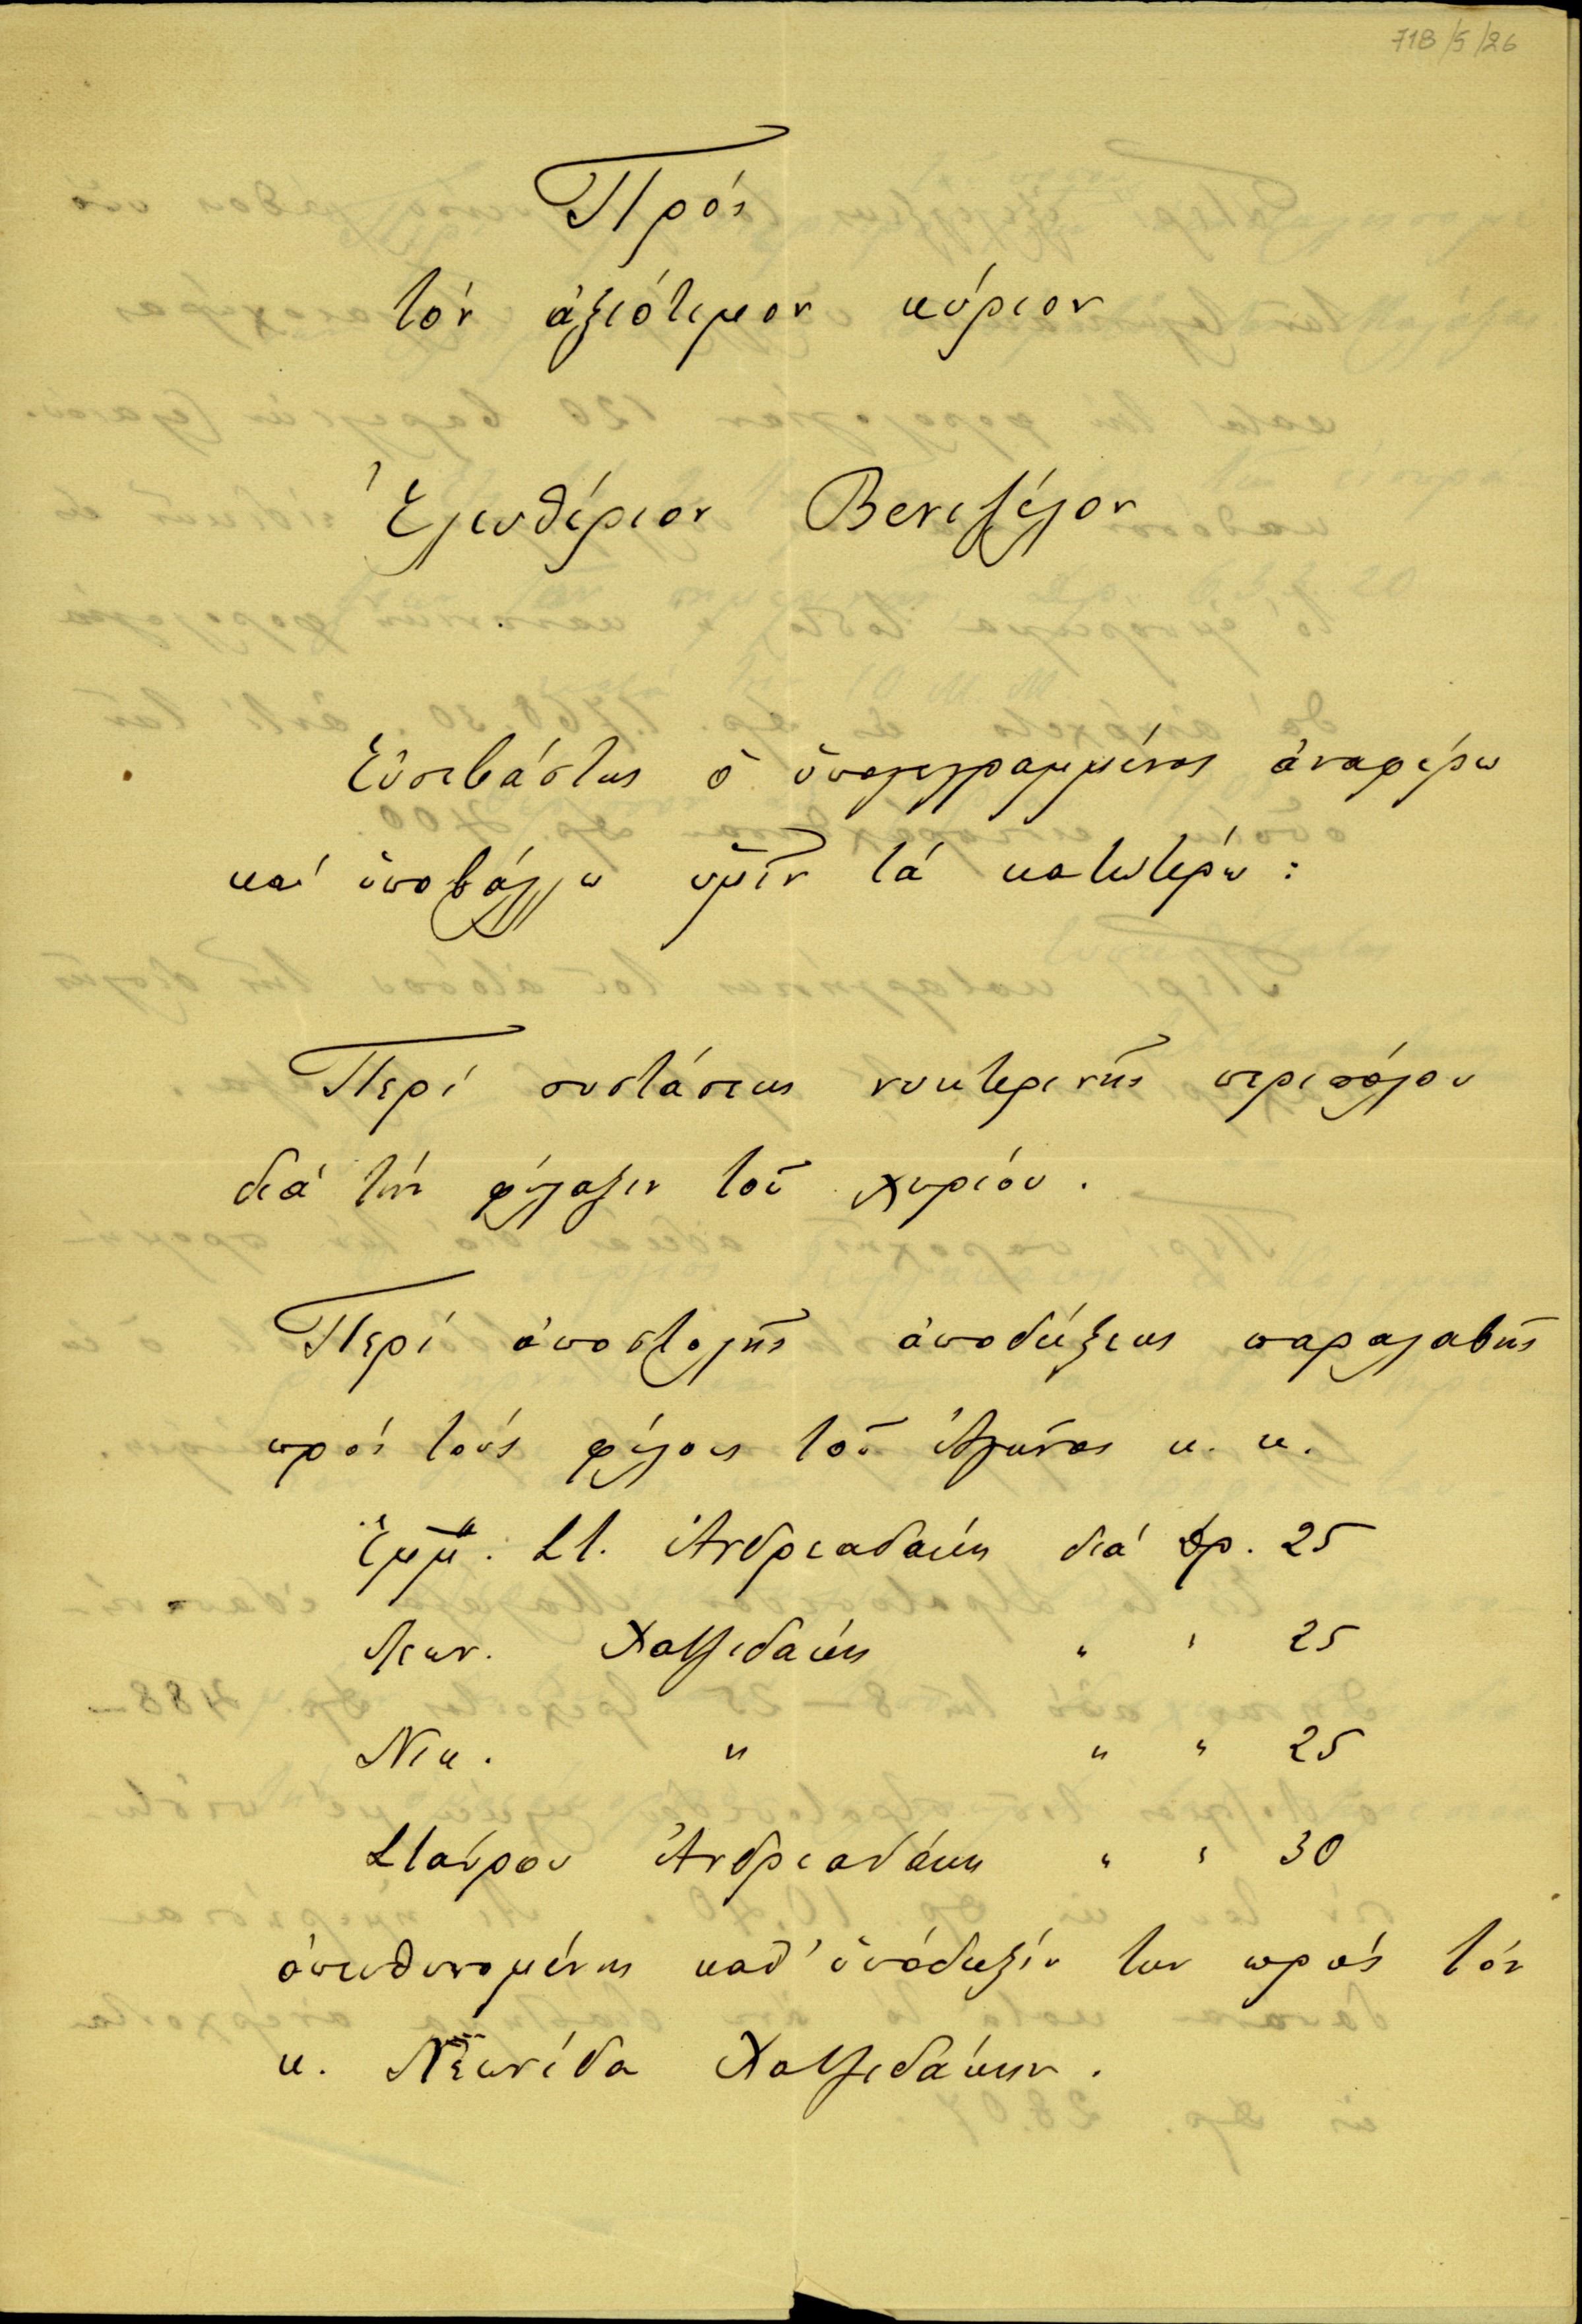 718/5/26
Πρός
τόν ἀξιότιμον κύριον
Ἐλευθέριον Βενιζέλον
Εὐσεβάστως ὁ ὑπογεγραμμένος ἀναφέρω
καί ὑποβάλλω ὑμῖν τά κατωτέρω:
Περί συστάσεως νυκτερινῆς περιπόλου
διά τήν φύλαξιν τοῦ χωρίου.
Περί ἀποστολῆς ἀποδείξεως παραλαβῆς
πρός τούς φίλους τοῦ Ἀγῶνος κ. κ.
Ἐμμ. Στ. Ἀνδρεαδάκη διά Δρ. 25
Λεων. Χατζιδάκη " " 25
Νικ. " " " 25
Σταύρου Ἀνδρεαδάκη " " 30
ἀπευθυνομένης καθ' ὑπόδειξίν των πρός τόν
κ. Λεωνίδα Χατζιδάκην.